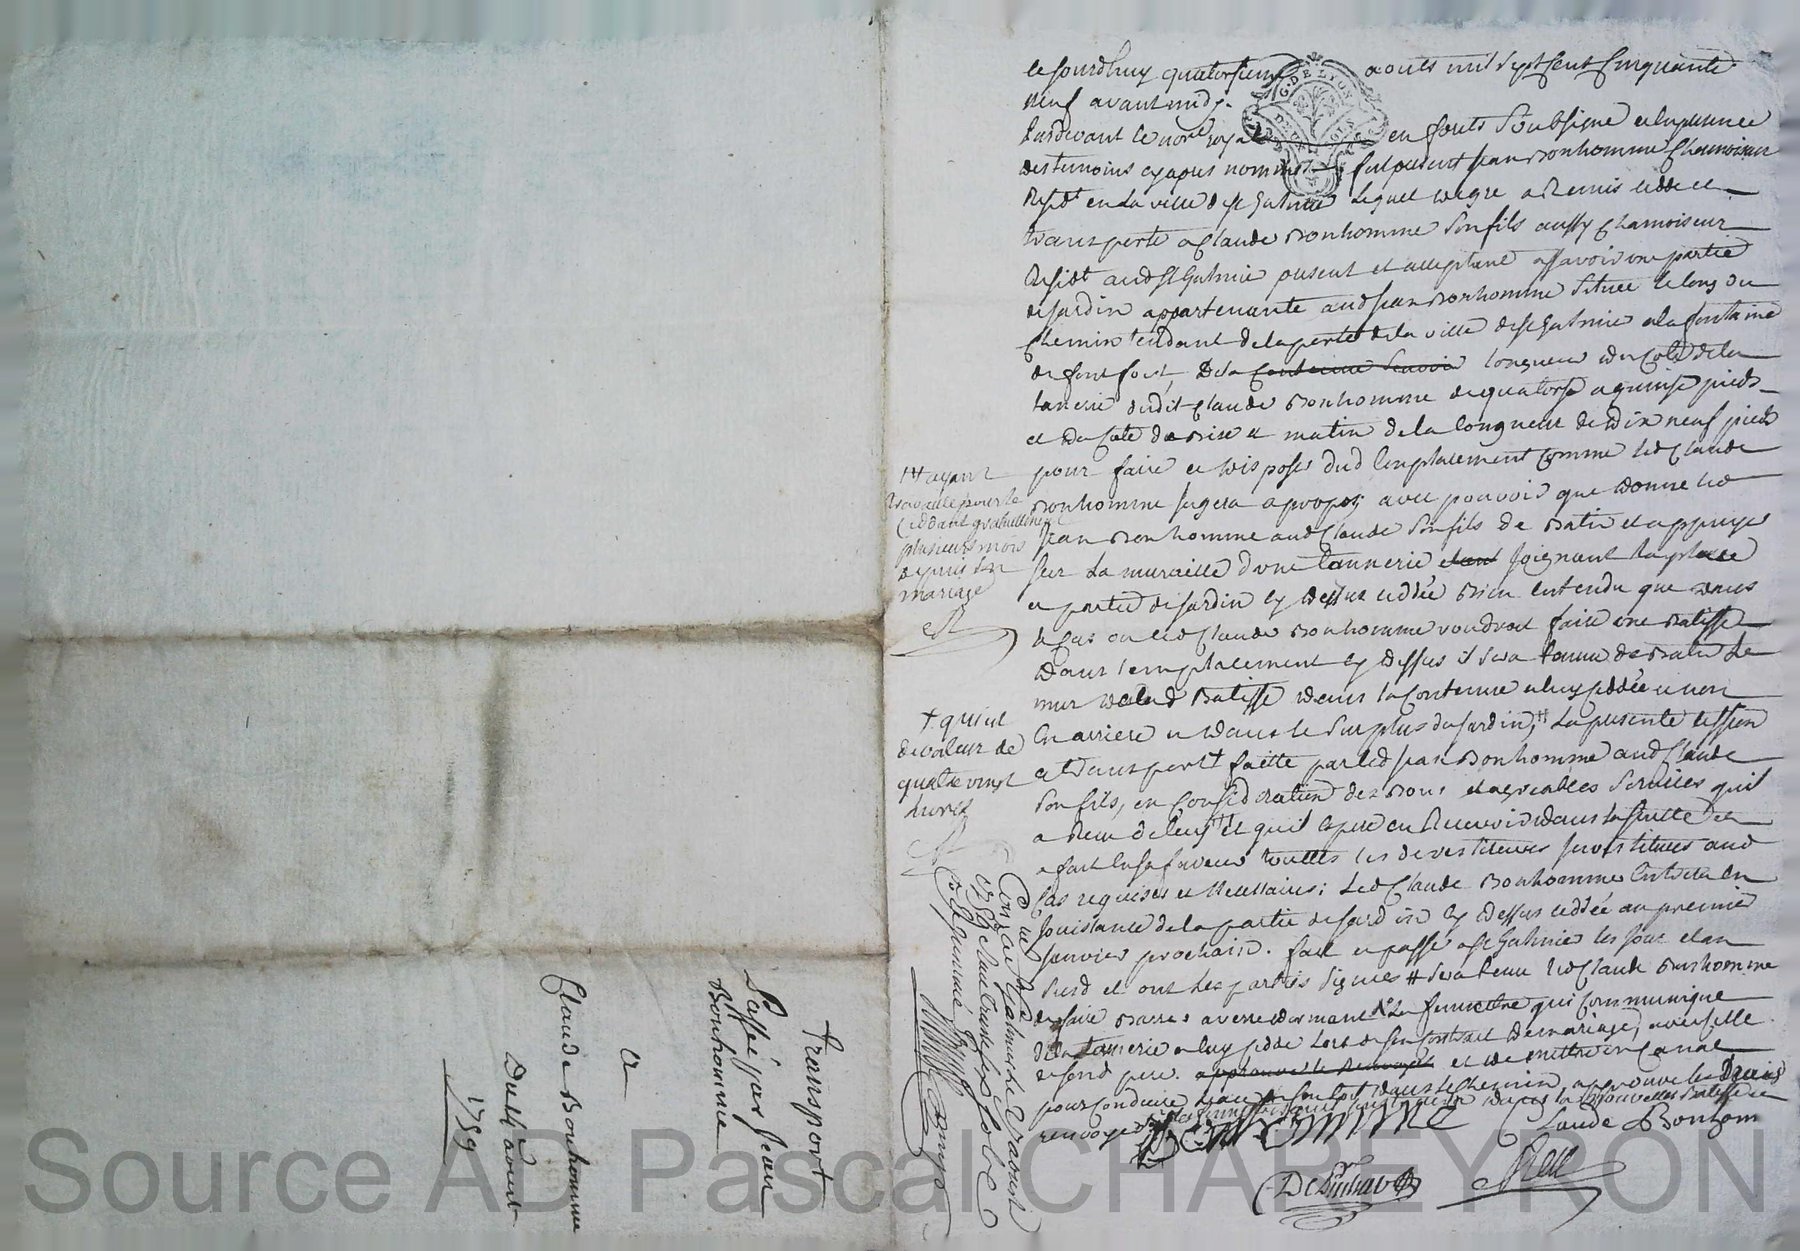 ce jourdhuy quatorsieme aouts mil sept cent cinquante
neuf avant midy
pardevant le nore royal en forets soubsigné et en presence
des temoins cy apres nommes fut present jean Bonhomme chamoiseur
residt en la ville de st galmier lequel de gré a remis cedde et
transporte a claude Bonhomme son fils aussy chamoiseur
residt aud st galmier present et acceptant assavoir une partie
de jardin appartenante aud jean Bonhomme située le long du
chemin tendant de la porte de la ville de st galmier a la fontaine
de font fort, de la contenue longueur du coté de la
tanerie dudit claude Bonhomme de quatorse a quinse pieds
et du coté de bise et matin de la longueur de dix neuf pieds
pour faire et disposer dud emplacement comme led claude
Bonhomme jugera a propos avec pouvoir que donne led
jean Bonhomme aud claude son fils de batir et appuyer
sur la muraille d'une tannerie joignant la place
et partie de jardin cy dessus ceddée bien entendu que dans
le cas ou led claude Bonhomme voudroit faire une batisse
dans l'emplacement cy dessus il sera tenu de batir le
mur de lad batisse dans la contenue a luy ceddée et non
en arriere et dans le surplus du jardin, la presente cession
et transport faitte par led jean Bonhomme aud claude
son fils, en consideration des bons et agreables services qu'il
a receu de luy et qu'il espere en recevoir dans la suitte et
a fait en sa faveur touttes les devestitures investitures aud
cas requises et necessaires; led claude Bonhomme entrera en
jouissance de la partie de jardin cy dessus ceddée au premier
janvier prochain. fait et passé a st galmier les jour et an
susd et ont les parties signés # sera tenu led claude Bonhomme
de faire barrer a verre dormant la fenetre qui communique
de la tanerie a luy cedde lors de son contrat de mariage, avec celle
de sond pere. et de mettre un canal
pour conduire dans le chemin approuve les
renvoye
Bonhomme
Claude Bonhom
++ ayant
travaillé pour le
ceddant gratuittement
plusieurs mois
depuis son
mariage
+ qui est
de valeur de
quatre vingt
livres
Transport
Passé par Jean
Bonhomme
a
Claude Bonhomme
Du 14 aoust
1759
G. DE LYON
Source AD Pascal CHAREYRON